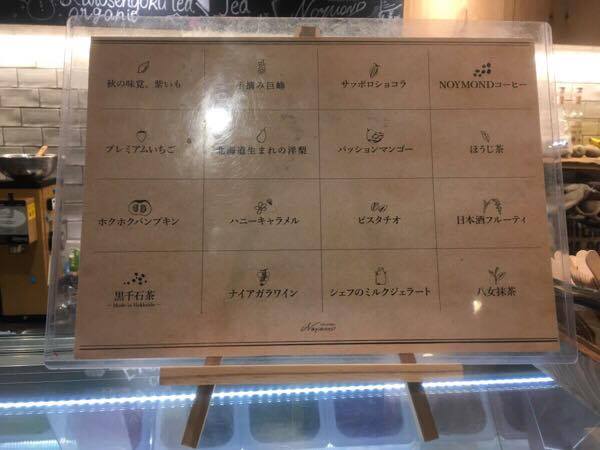 Kurosengoku tea
organic
Tea
NOYMOND
秋の味覚、紫いも
手摘み巨峰
サッポロショコラ
NOYMONDコーヒー
プレミアムいちご
北海道生まれの洋梨
パッションマンゴー
ほうじ茶
ホクホクパンプキン
ハニーキャラメル
ピスタチオ
日本酒フルーティ
黒千石茶
Made in Hokkaido
ナイアガラワイン
シェフのミルクジェラート
八女抹茶
Noymond